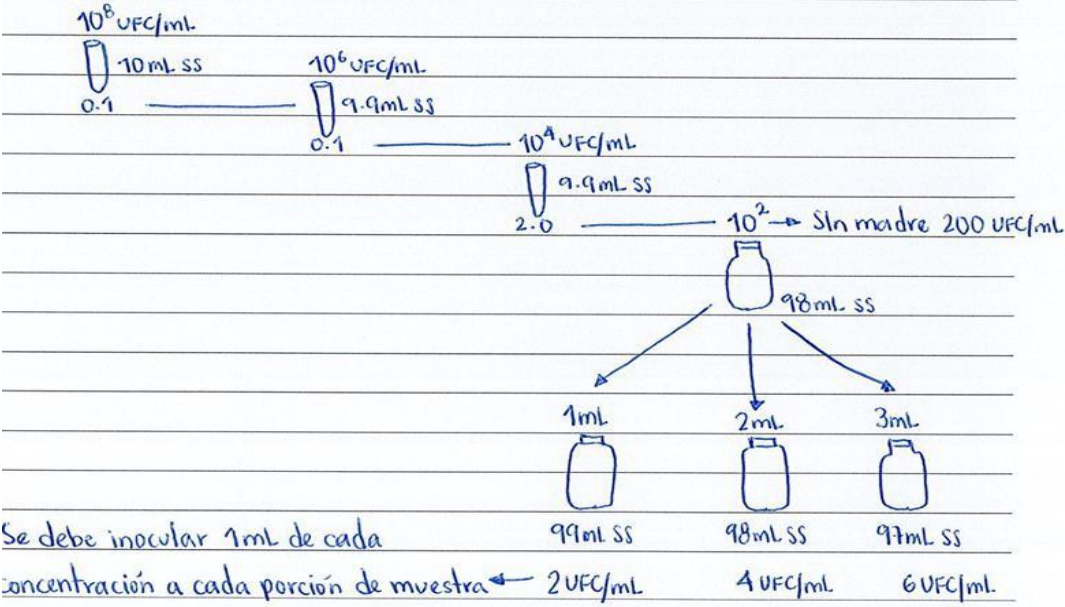 10⁸ UFC/mL
10 mL SS
10⁶ UFC/mL
0.1
9.9mL SS
0.1
10⁴ UFC/mL
9.9mL SS
2.0
10² → Sln madre 200 UFC/mL
98mL SS
1mL 2mL 3mL
99mL SS 98mL SS 97mL SS
Se debe inocular 1mL de cada
concentración a cada porción de muestra ← 2 UFC/mL 4 UFC/mL 6 UFC/mL